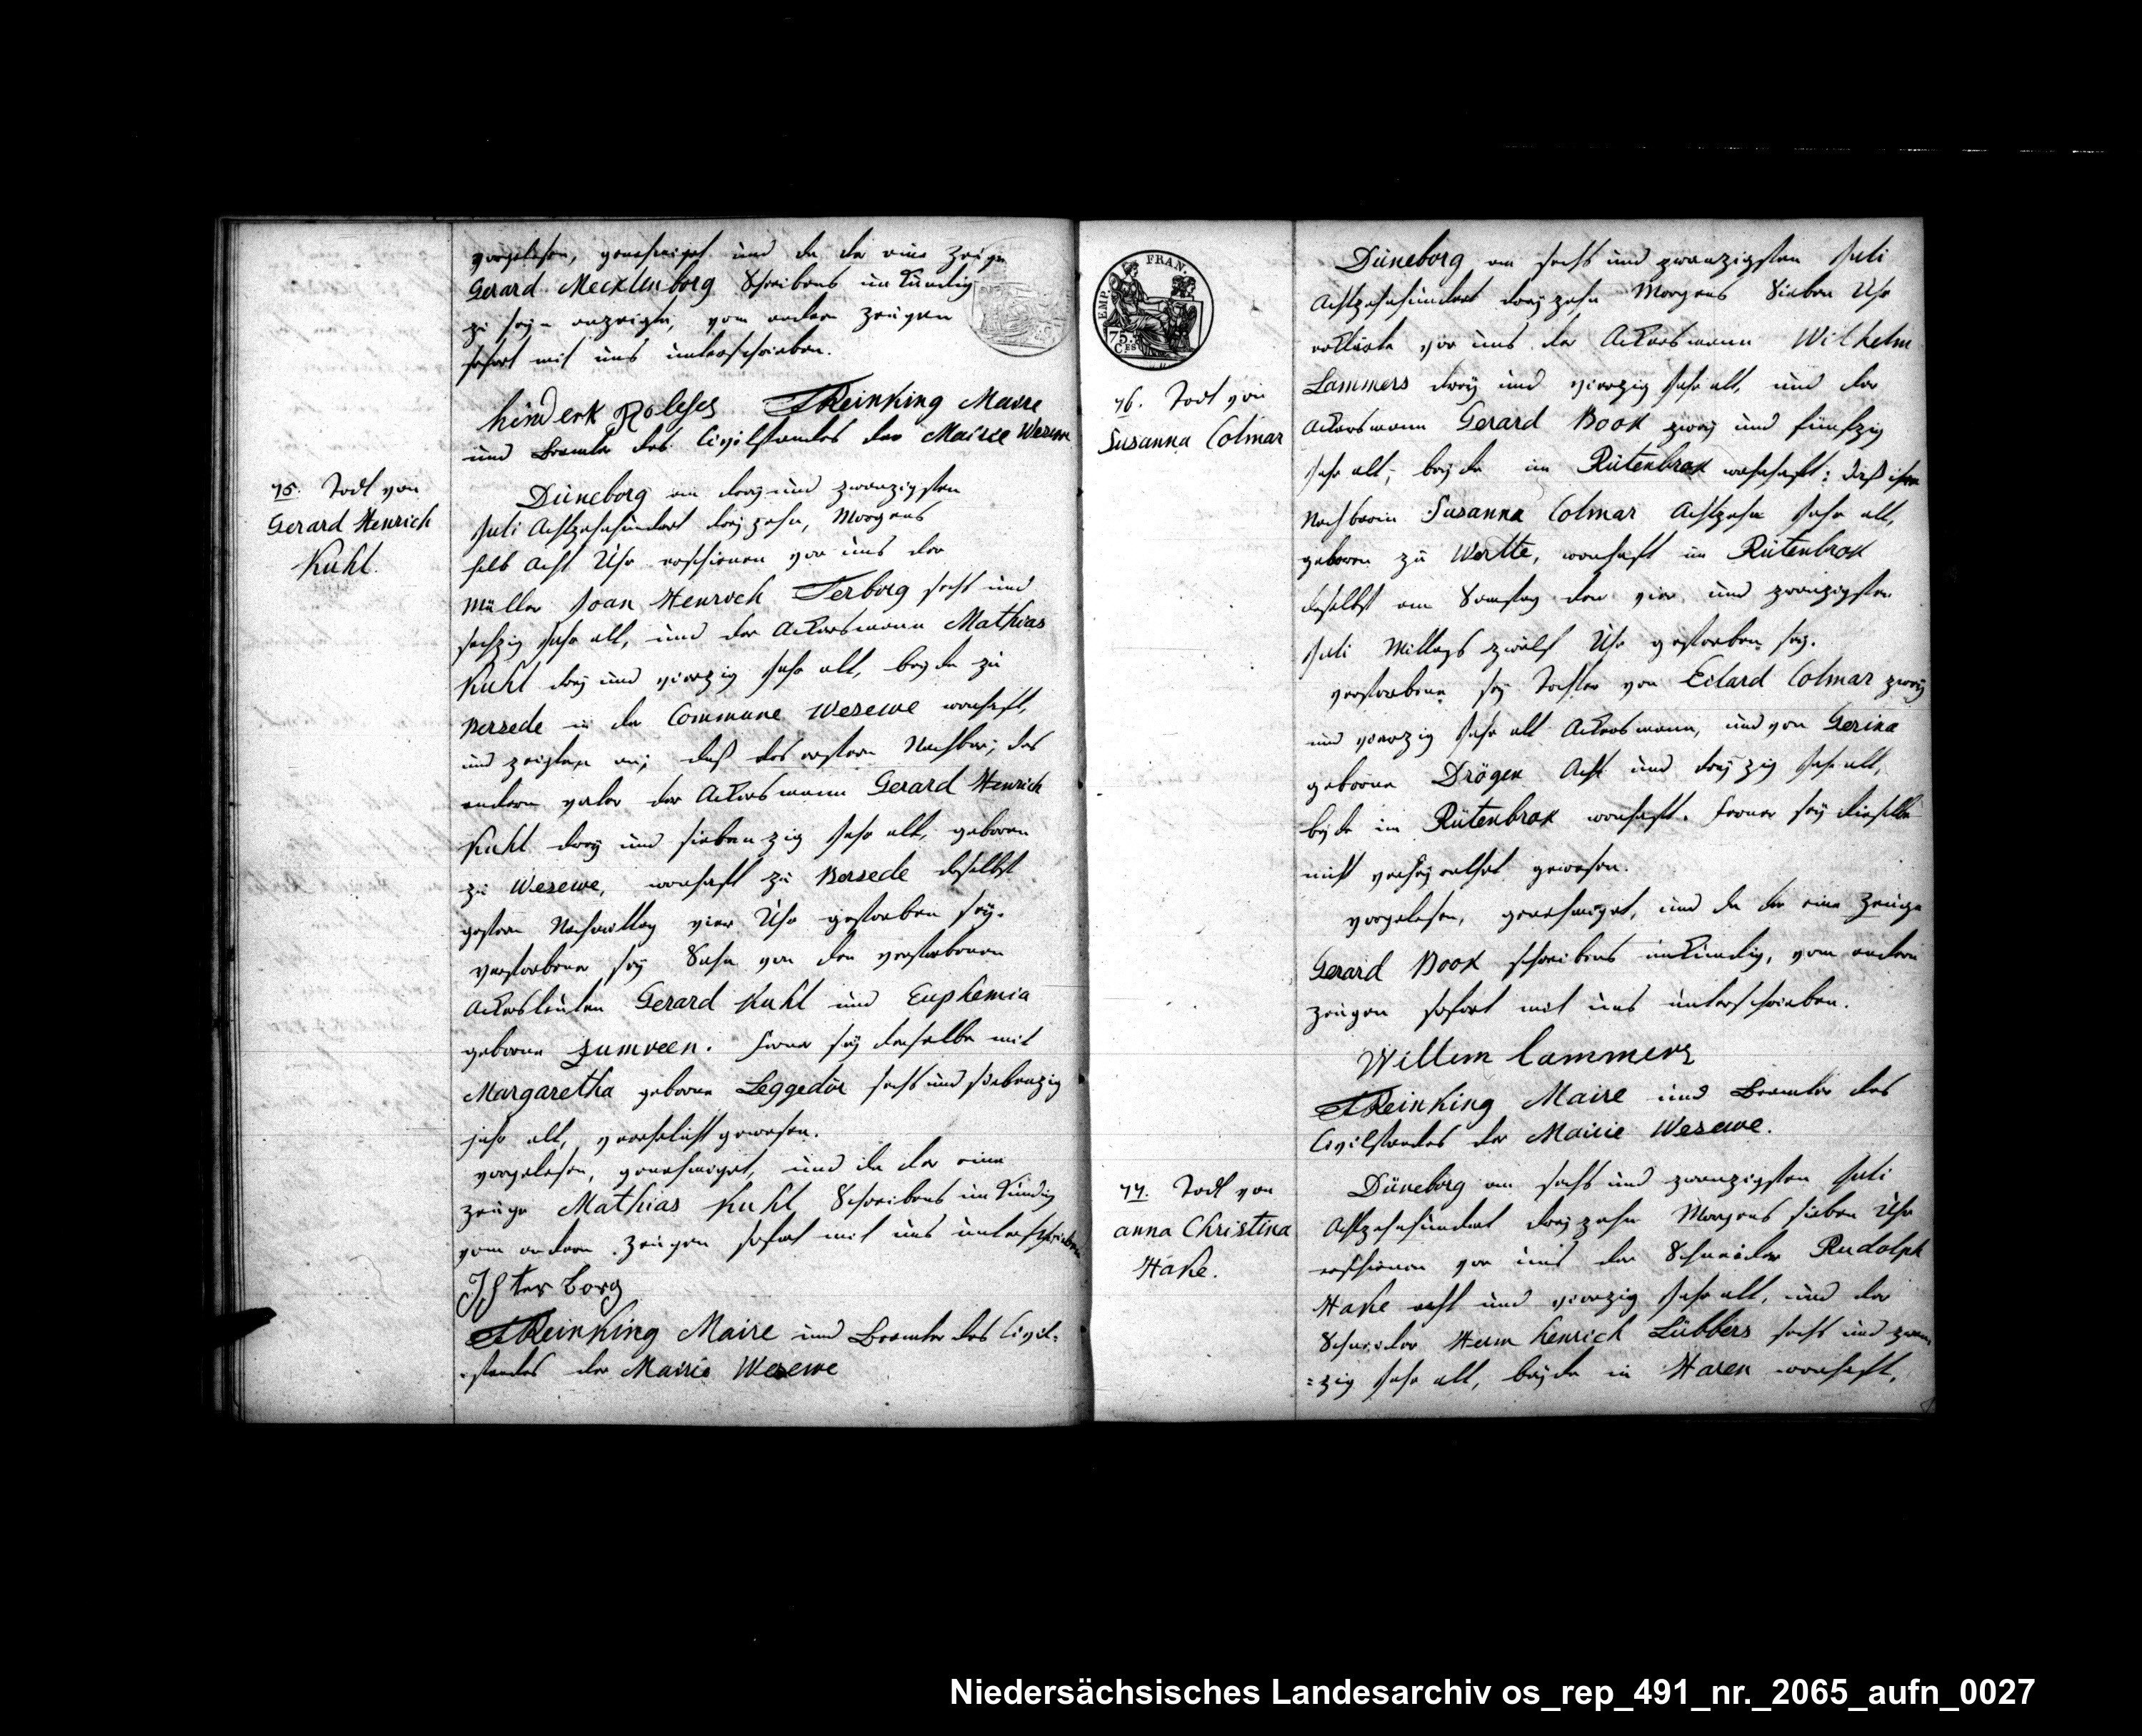 vorgelesen, genehmiget und da der eine Zeuge
Gerard Mecklenborg Schreibens unkündig
zu seyn anzeigte, vom andern Zeugen
sofort mit uns unterschrieben.
hinderk Rolefes Reinking Maire
und Beamter des Civilstandes der Mairie Wesewe
75. Todt von
Gerard Henrich
Kuhl.
Düneborg am drey und zwanzigsten
Juli Achtzehnhundert dreyzehn, Morgens
halb Acht Uhr erschienen vor uns der
Müller Joan Henrich Terborg sechs und
sechzig Jahr alt, und der Ackersmann Mathias
Kuhl drey und vierzig Jahr alt, beyde zu
Bersede in der Commune Wesewe wonhaft,
und zeigten an, daß des erstern Nachbar, des
andern vater der Ackersmann Gerard Henrich
Kuhl drey und siebenzig Jahr alt, geboren
zu Wesewe, wonhaft zu Bersede daselbst
gestern Nachmittag vier Uhr gestorben sey.
verstorbener sey Sohn von den verstorbenen
Ackersleuten Gerard Kuhl und Euphemia
geborne Zumveen. Ferner sey derselbe mit
Margaretha geborne Leggedör sechs und siebenzig
jahr alt, verehelicht gewesen.
vorgelesen, genehmiget, und da der eine
Zeuge Mathias Kuhl Schreibens unkündig
vom andern Zeugen sofort mit uns unterschrieben
JHterborg
Reinking Maire und Beamter des Civil=
standes der Mairie Wesewe
EMP. FRAN.
75. C.ES
76. Todt von
Susanna Colmar
Düneborg am sechs und zwanzigsten Juli
Achtzehnhundert dreyzehn Morgens Sieben Uhr
erklärte vor uns der Ackersmann Wilhelm
Lammers drey und vierzig Jahr alt, und der
Ackersmann Gerard Book zwey und fünfzig
Jahr alt, beyde im Rütenbrok wohnhaft: daß ihre
Nachbarin Susanna Colmar Achtzehn Jahr alt,
geboren zu Wertte, wonhaft im Rütenbrok
daselbst am Samstag den vier und zwanzigsten
Juli Mittags zwölf Uhr gestorben sey.
verstorbene sey Tochter von Eilard Colmar zwey
und vierzig Jahr alt Ackersmann, und von Gerina
geborne Drögen Acht und dreyzig Jahr alt,
beyde im Rütenbrok wonhaft. Ferner sey dieselbe
nicht verheyrathet gewesen.
vorgelesen, genehmiget, und da der eine Zeuge
Gerard Book schreibens unkündig, vom andern
zeugen sofort mit uns unterschrieben.
Willem lammers
Reinking Maire und Beamter des
Civilstandes der Mairie Wesewe.
77. Todt von
anna Christina
Hake.
Düneborg am sechs und zwanzigsten Juli
Achtzehnhundert dreyzehn Morgens sieben Uhr
erschienen vor uns der Schneider Rudolph
Hake acht und vierzig Jahr alt, und der
Schneider Herm henrich Lübbers sechs und zwan
=zig Jahr alt, beyde in Haren wonhaft,
Niedersächsisches Landesarchiv os_rep_491_nr._2065_aufn_0027